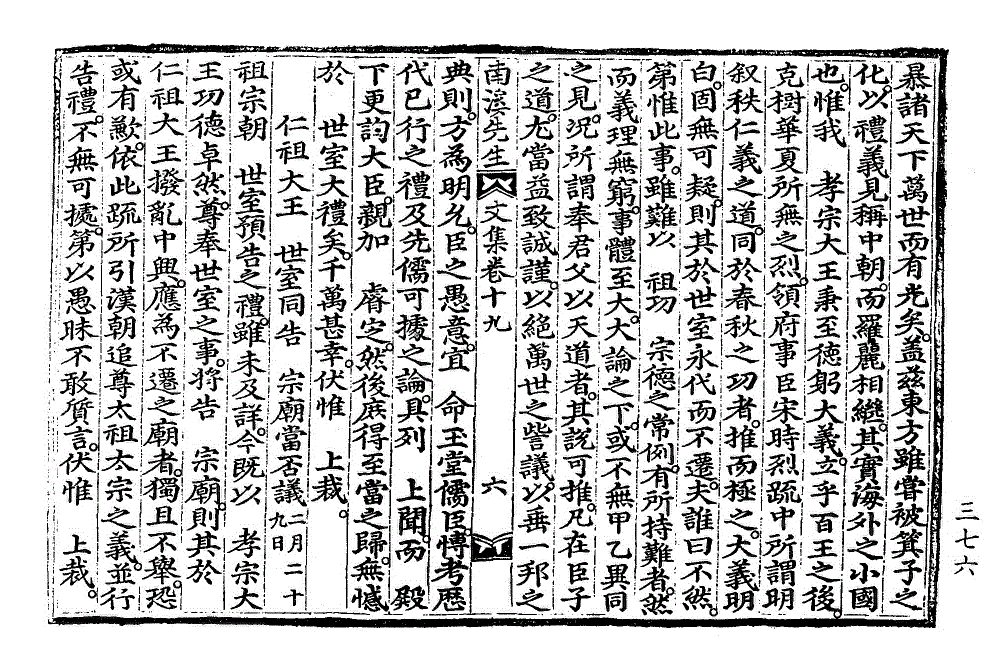 暴諸天下萬世而有光矣。盖玆東方雖嘗被箕子之
化。以禮義見稱中朝。而羅麗相繼。其實海外之小國
也。惟我　孝宗大王秉至德躬大義。立乎百王之後。
克樹華夏所無之烈。領府事臣宋時烈疏中所謂明
叙秩仁義之道。同於春秋之功者。推而極之。大義明
白。固無可疑。則其於世室永代而不遷。夫誰曰不然。
第惟此事。雖難以　祖功　宗德之常例。有所持難者。然
而義理無窮。事體至大。大論之下。或不無甲乙異同
之見。况所謂奉君父以天道者。其說可推。凡在臣子
之道。尤當益致誠謹。以絕萬世之訾議。以垂一邦之
南溪先生　文集卷十九　六
典則。方爲明允。臣之愚意。宜　命玉堂儒臣。慱考歷
代已行之禮及先儒可據之論。具列　上聞。而　殿
下更詢大臣。親加　睿定。然後庶得至當之歸。無憾
於　世室大禮矣。千萬甚幸。伏惟　上裁。
仁祖大王　世室同告　宗廟當否議二月二十九日
祖宗朝　世室預告之禮。雖未及詳。今旣以　孝宗大
王功德卓然。尊奉世室之事。將告　宗廟。則其於
仁祖大王撥亂中興。應爲不遷之廟者。獨且不舉。恐
或有歉。依此疏所引漢朝追尊太祖太宗之義。並行
告禮。不無可據。第以愚昧不敢質言。伏惟　上裁。
三七六